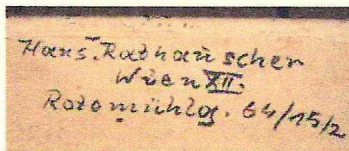 Hans Rathauscher
Wien XII.
Rotomühlg. 64/15/2